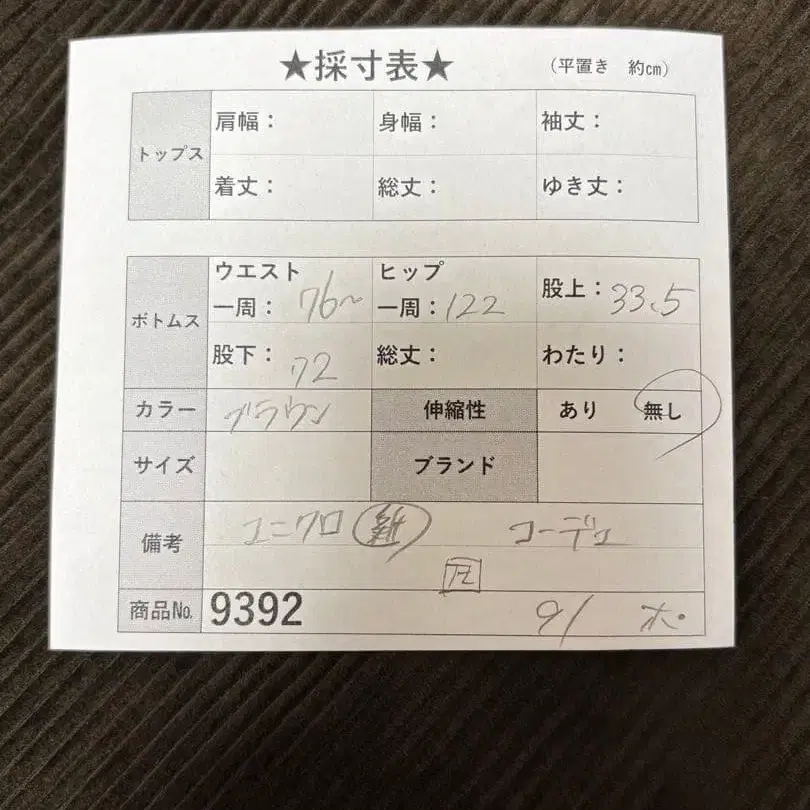 ★採寸表★ (平置き 約cm)
トップス
肩幅： 身幅： 袖丈：
着丈： 総丈： ゆき丈：
ボトムス
ウエスト一周： 76〜 ヒップ一周： 122 股上： 33.5
股下： 72 総丈： わたり：
カラー ブラウン 伸縮性 あり 無し
サイズ ブランド
備考 ユニクロ コーデュ
商品No. 9392 91